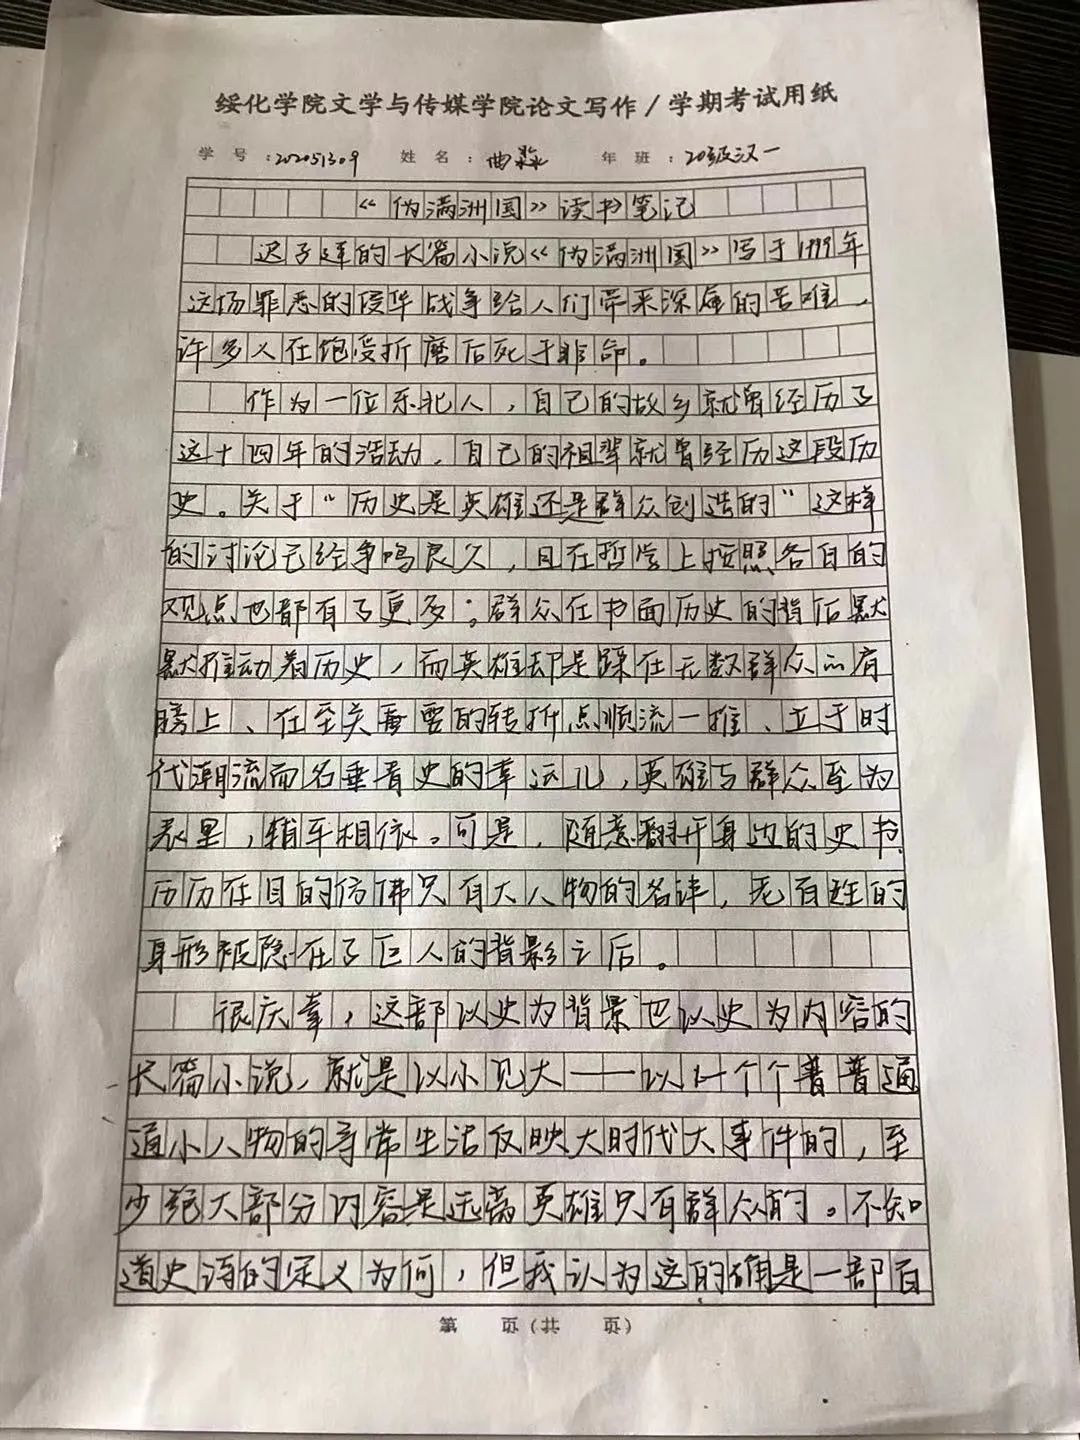 绥化学院文学与传媒学院论文写作/学期考试用纸
学号:202051309 姓名:曲淼 年班:20级汉一
《伪满洲国》读书笔记
迟子建的长篇小说《伪满洲国》写于1999年
这场罪恶的侵华战争给人们带来深重的苦难,
许多人在饱受折磨后死于非命。
作为一位东北人,自己的故乡就曾经历了
这十四年的活动,自己的祖辈就曾经历这段历
史。关于“历史是英雄还是群众创造的”这样
的讨论已经争鸣良久,且在哲学上按照各自的
观点也都有了更多;群众在书面历史的背后默
默推动着历史,而英雄却是踩在无数群众的肩
膀上、在至关重要的转折点顺流一推、立于时
代潮流而名垂青史的幸运儿,英雄与群众互为
表里,辅车相依。可是,随意翻开身边的史书
历历在目的仿佛只有大人物的名讳,老百姓的
身形被隐在了巨人的背影之后。
很庆幸,这部以史为背景也以史为内容的
长篇小说,就是以小见大——以一个个普普通
通小人物的寻常生活反映大时代大事件的,至
少绝大部分内容是远离英雄只有群众的。不知
道史诗的定义为何,但我认为这的确是一部百
第 页(共 页)